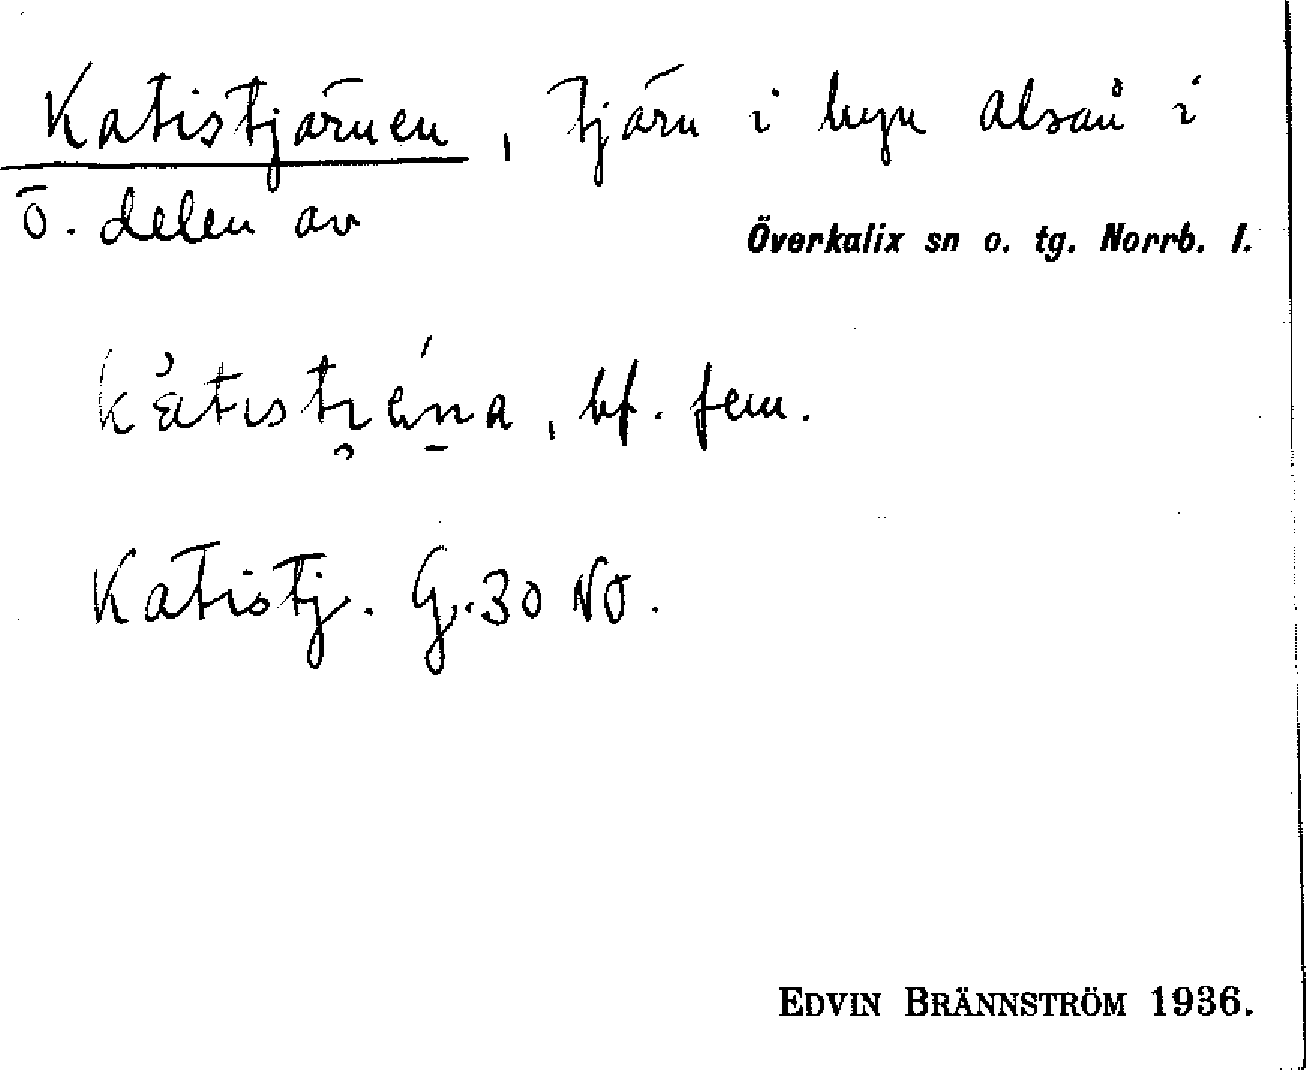 Katistjärnen, tjärn i byn Alsån i
ö. delen av
Överkalix sn o. tg. Norrb. l.
bf. fem.
Katistj. G.30 NO.
EDVIN BRÄNNSTRÖM 1936.